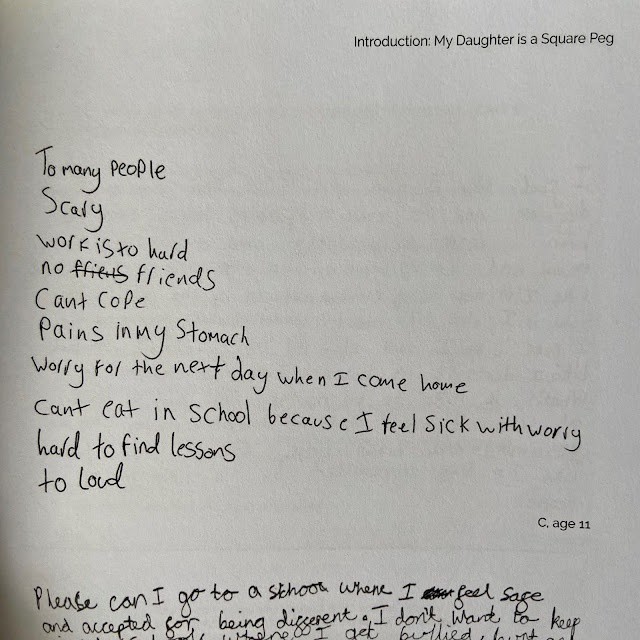 Introduction: My Daughter is a Square Peg
To many people
Scary
work is to hard
no friens friends
Cant cope
Pains in my Stomach
Worry for the next day when I come home
Cant eat in school because I feel sick with worry
hard to find lessons
to loud
C, age 11
Please can I go to a school where I feel safe
and accepted for being different. I don't want to keep
where I get bullied